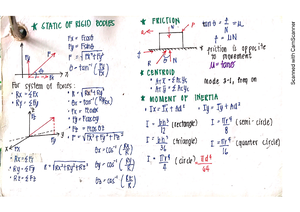 * STATIC OF RIGID BODIES
Px = Pcosθ
Py = Psinθ
P = √Px² + Py²
θ = tan⁻¹ (Py/Px)
For system of forces:
• Rx = ΣPx
• Ry = ΣPy
• R = √Rx² + Ry²
• θx = tan⁻¹ (Ry/Rx)
• Px = Pcosθx
• Py = Pcosθy
• Pz = Pcosθz
• P = √Px² + Py² + Pz²
Rx = ΣPx
Ry = ΣPy
Rz = ΣPz
R = √Rx² + Ry² + Rz²
θx = cos⁻¹ (Rx/R)
θy = cos⁻¹ (Ry/R)
θz = cos⁻¹ (Rz/R)
* FRICTION
P
N
R
tanθ = F/N
F = μN
friction is opposite
to movement
μ = tanθ
* CENTROID
• Ax̄ = Σax
• Aȳ = Σay
mode 3-1, freq on
* MOMENT OF INERTIA
• Ix = Ix̄ + Ad²
• Iy = Iȳ + Ad²
I = bh³/12 (rectangle)
I = πr⁴/8 (semi-circle)
I = bh³/36 (triangle)
I = πr⁴/16 (quarter circle)
I = πr⁴/4 (circle)
πd⁴/64
Scanned with CamScanner